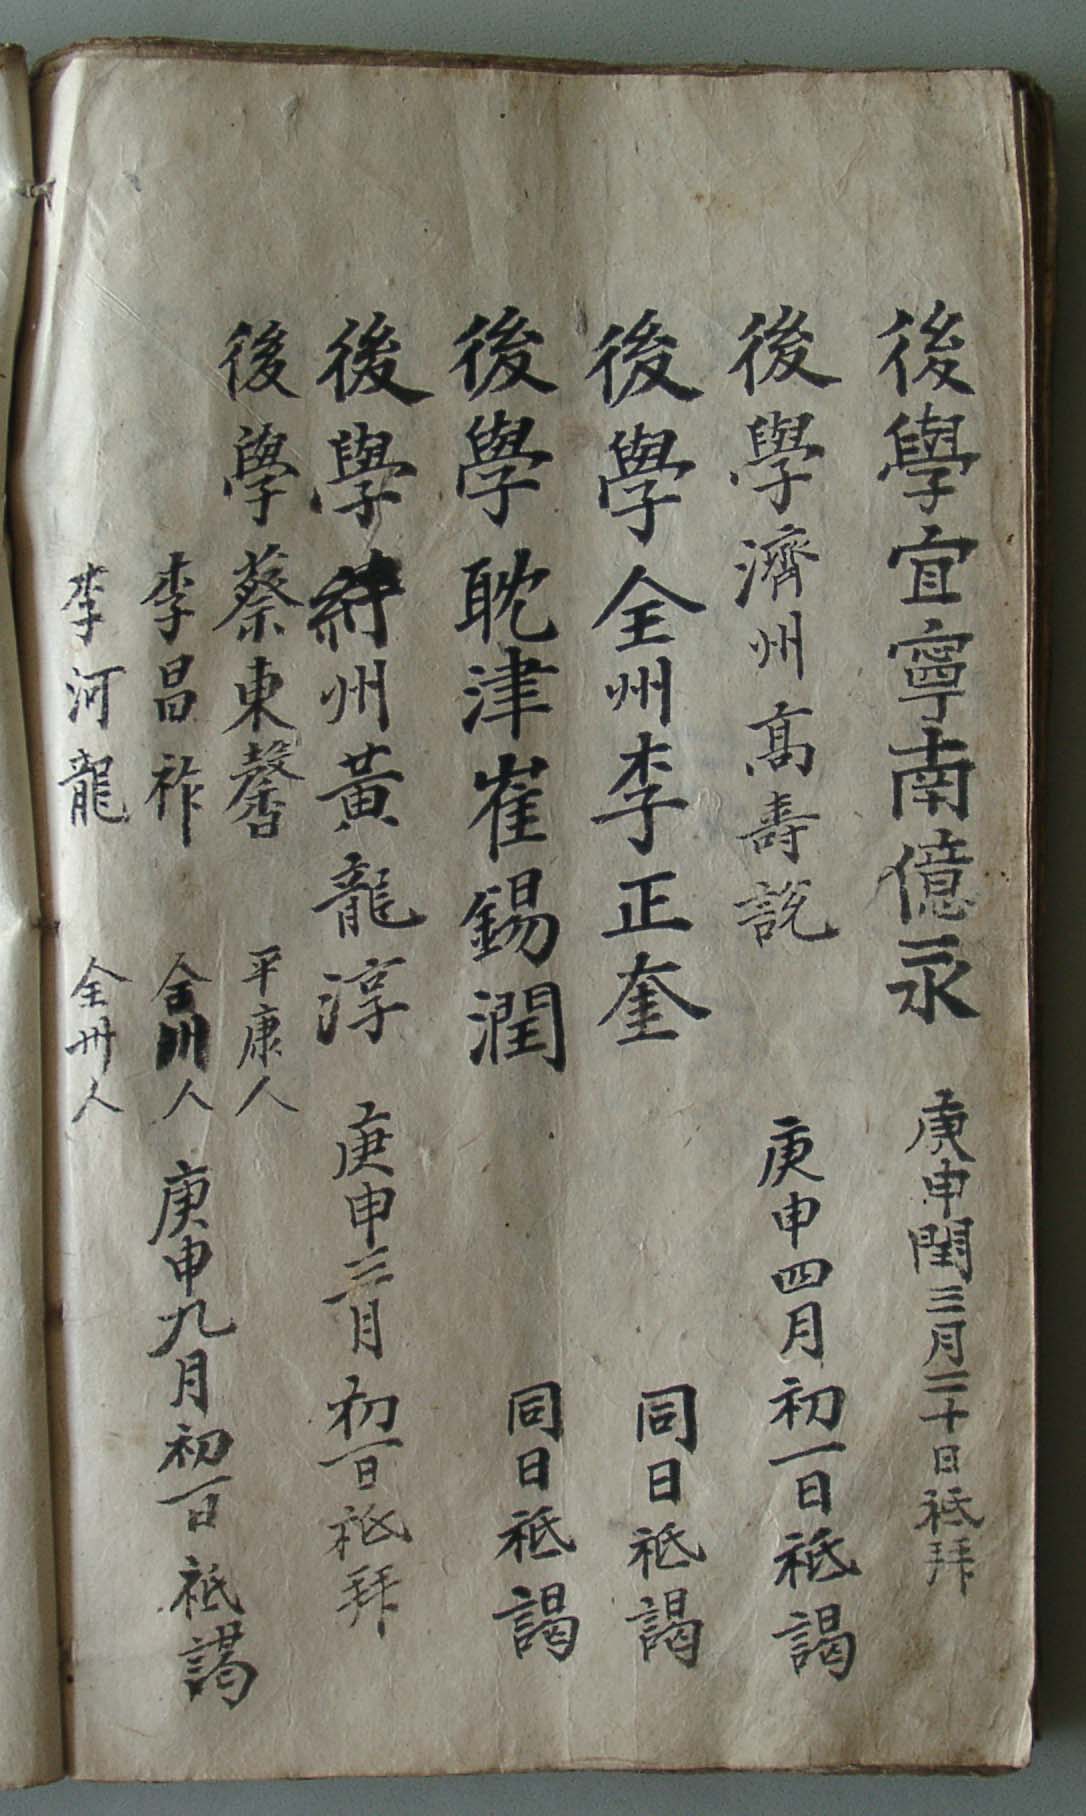 後學宜寧南億永 庚申閏三月二十日祗拜
後學濟州高壽說 庚申四月初一日祗謁
後學全州李正奎 同日祗謁
後學耽津崔錫潤 同日祗謁
後學 州黃龍淳 庚申三月初一日祗拜
後學蔡東馨 平康人
李昌祚 全州人 庚申九月初一日祗謁
李河龍 全州人